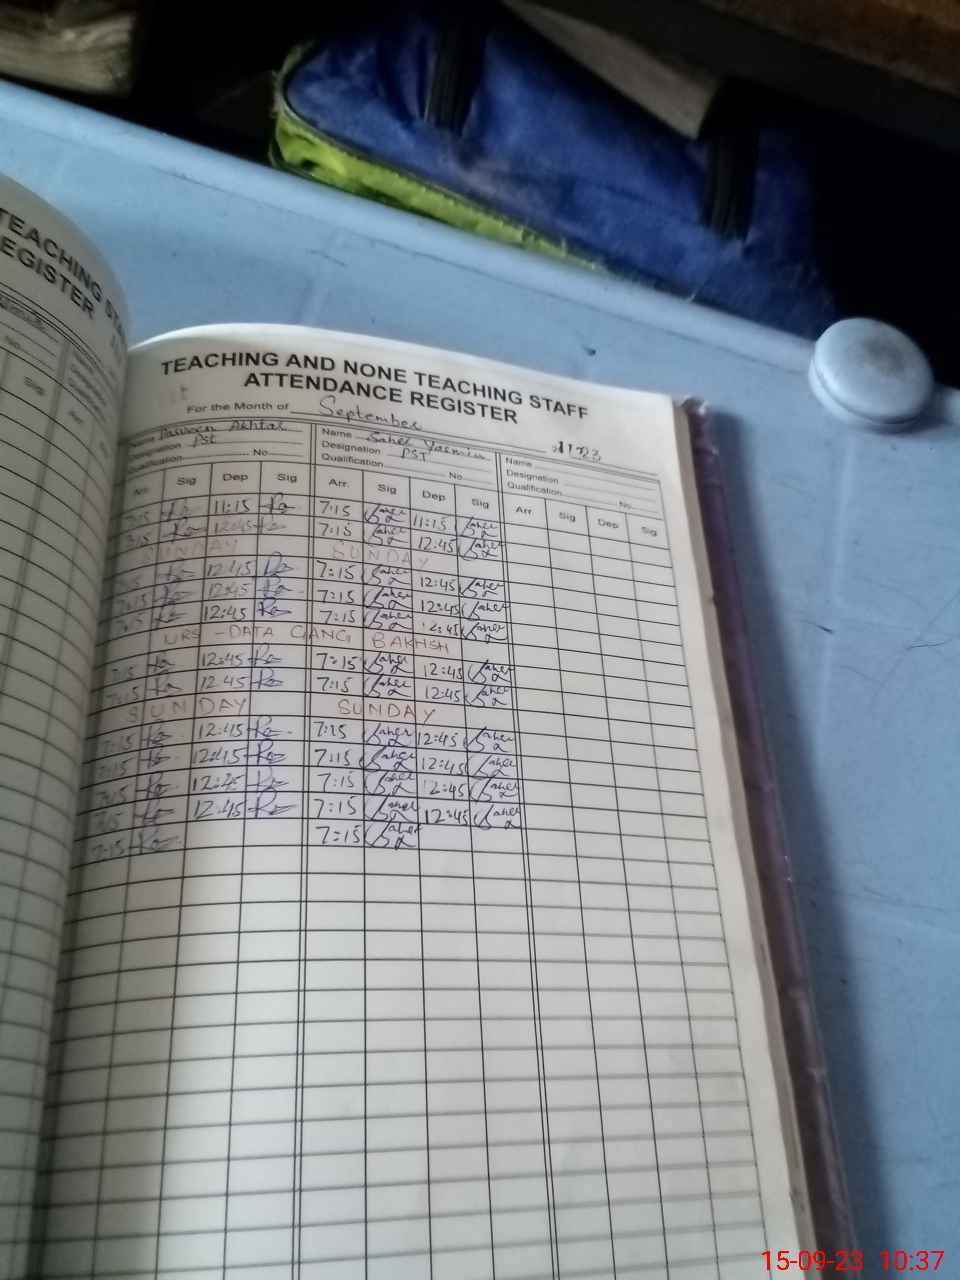 TEACHING
REGISTER
No.
Sig
TEACHING AND NONE TEACHING STAFF
ATTENDANCE REGISTER
For the Month of September
Name Parveen Akhtar Name Saher Yasmin Name
Designation PST Designation PST Designation
Qualification No Qualification No Qualification No.
Arr. Sig Dep Sig Arr. Sig Dep Sig Arr. Sig Dep Sig
7:15 11:15 7:15 Saher 11:15 Saher
7:15 12:45 7:15 Saher 12:45 Saher
SUNDAY SUNDAY
7:15 12:45 7:15 Saher 12:45 Saher
7:15 12:45 7:15 Saher 12:45 Saher
7:15 12:45 7:15 Saher 12:45 Saher
URS - DATA GANG BAKHSH
7:15 12:45 7:15 Saher 12:45 Saher
7:15 12:45 7:15 Saher 12:45 Saher
SUNDAY SUNDAY
7:15 12:45 7:15 Saher 12:45 Saher
7:15 12:45 7:15 Saher 12:45 Saher
7:15 12:45 7:15 Saher 12:45 Saher
7:15 12:45 7:15 Saher 12:45 Saher
7:15 7:15 Saher
15-09-23 10:37